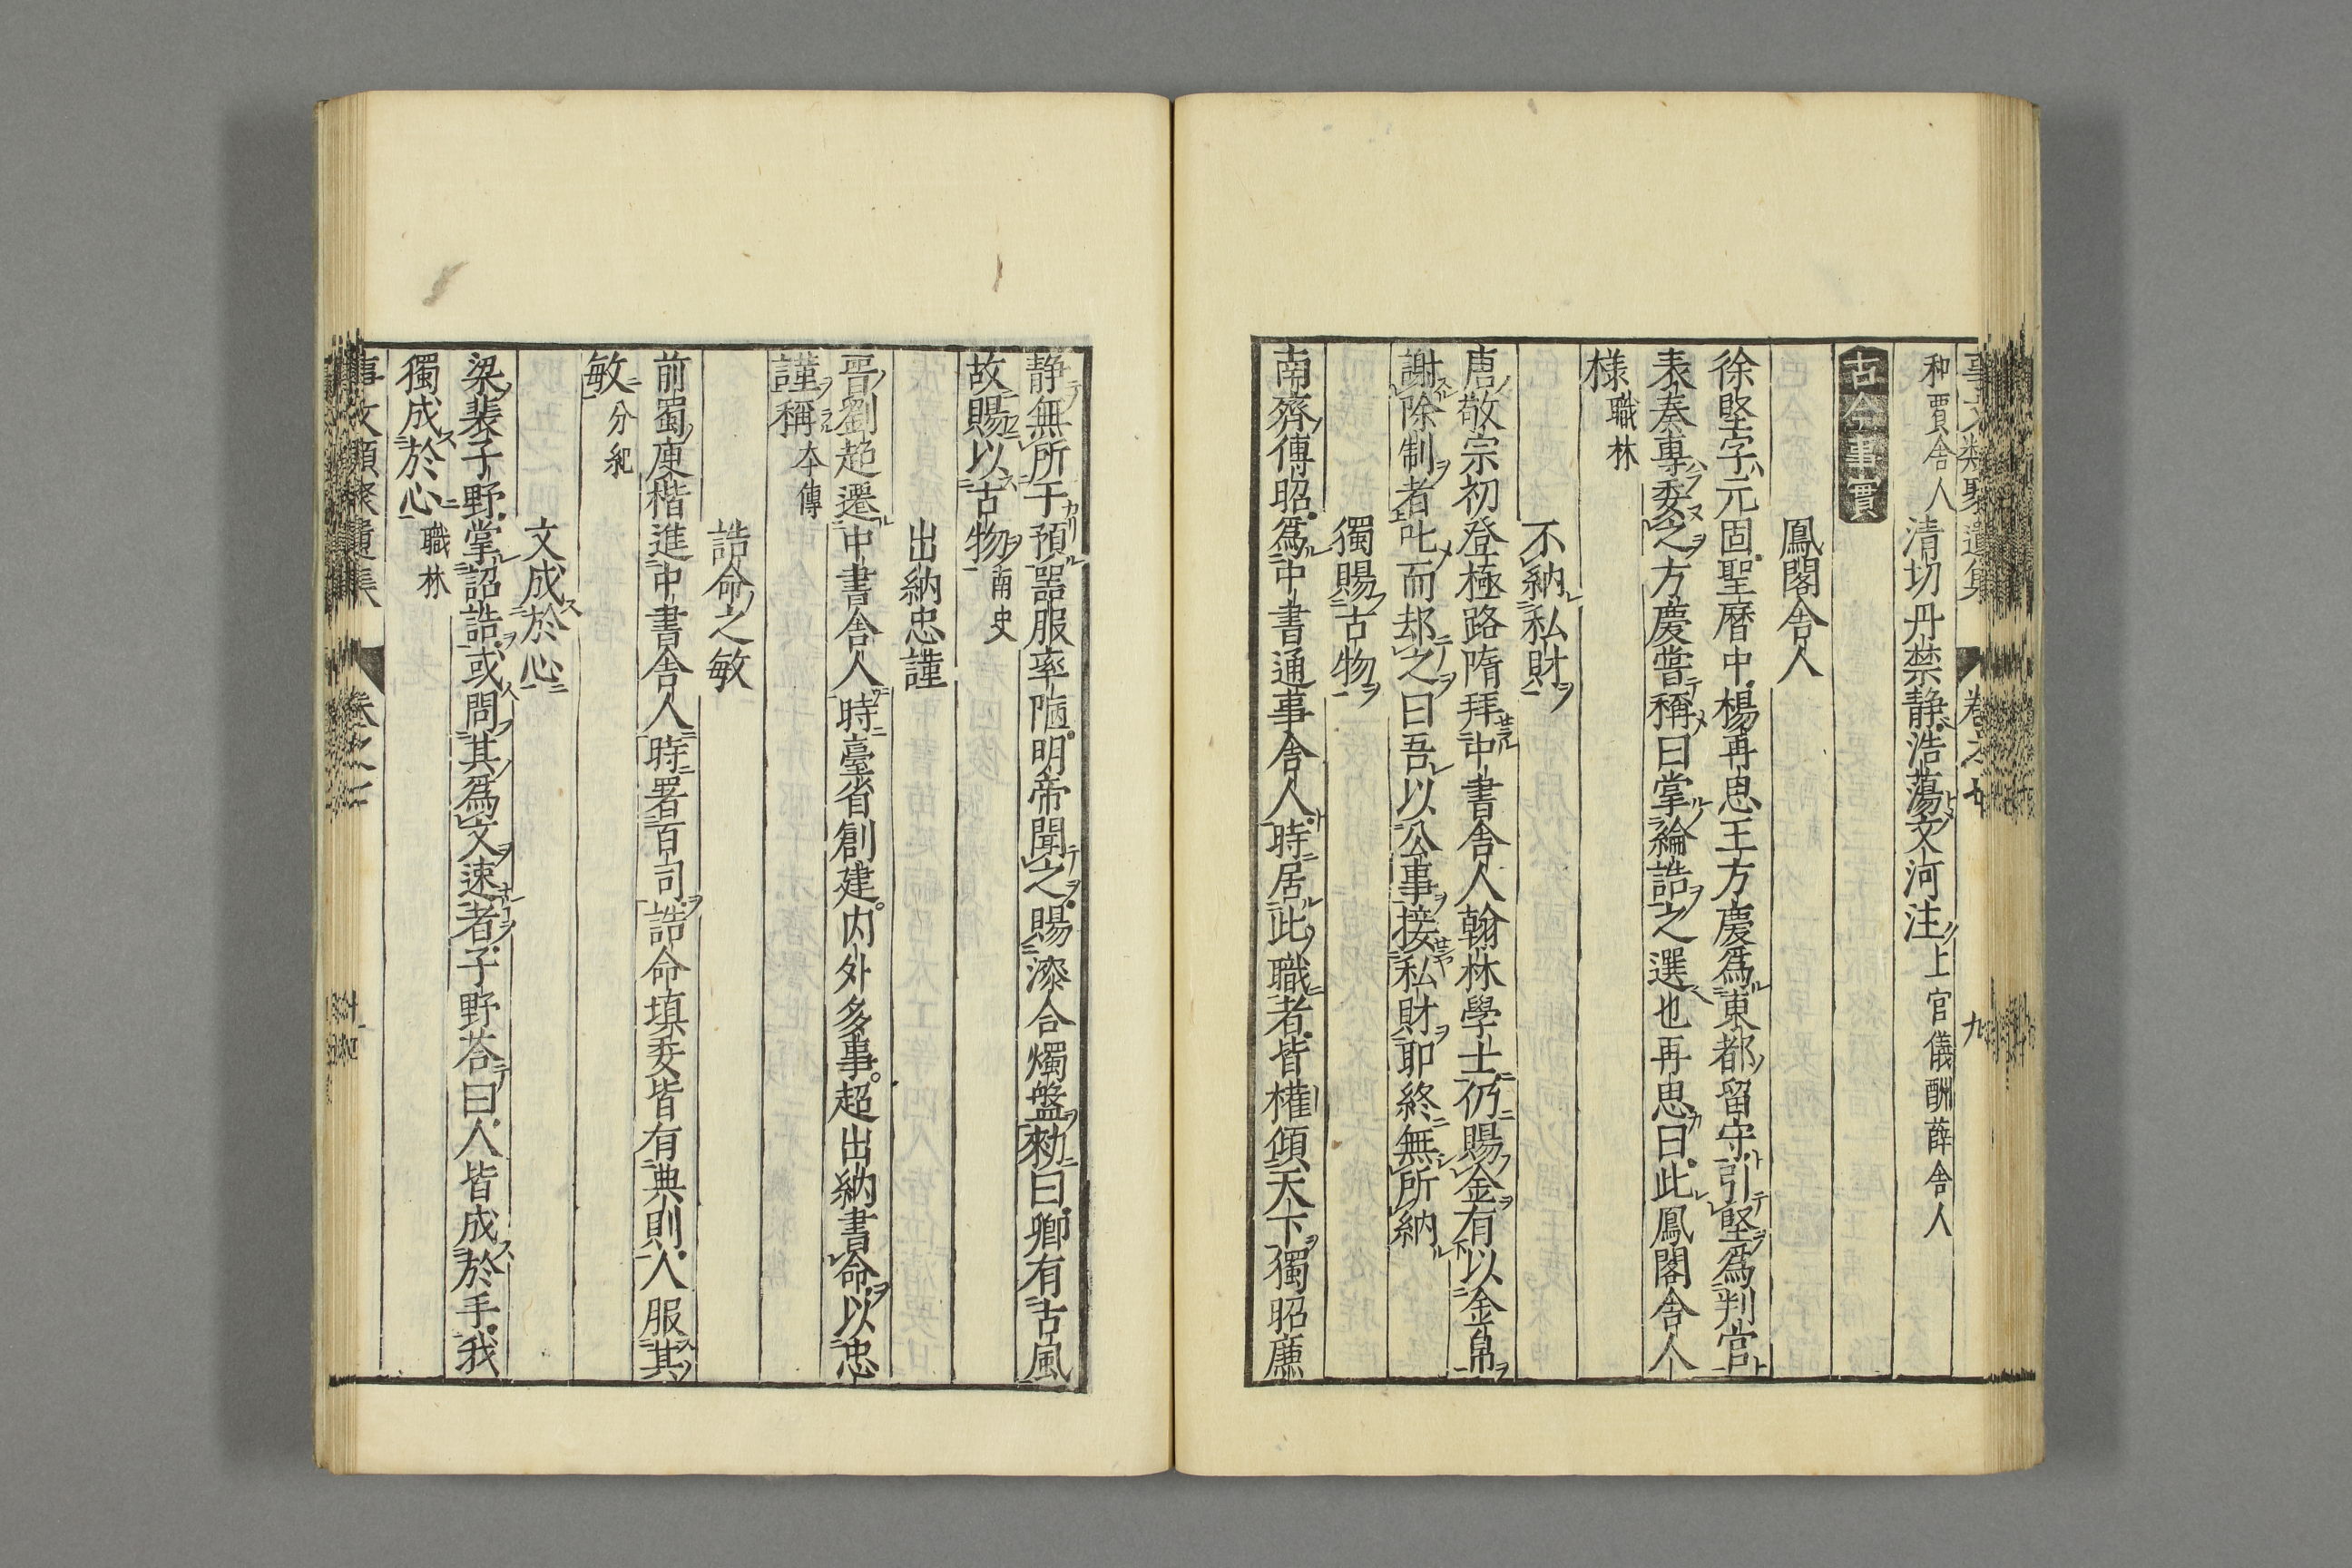 和賈舍人清切丹禁静浩蕩文河注上官儀酬薛舍人
古今事實
鳳閣舍人
徐堅字元固聖曆中楊再思王方慶爲東都留守引堅爲判官
表奏專委之方慶嘗稱曰掌綸誥之選也再思曰此鳳閣舍人
様職林
不納私財
唐敬宗初登極路隋拜中書舍人翰林學士仍賜金有以金帛
謝除制者叱而却之曰吾以公事接私財耶終無所納
獨賜古物
南齊傅昭爲中書通事舍人時居此職者皆權傾天下獨昭廉
静無所干預器服率陋明帝聞之賜漆合燭盤勑曰卿有古風
故賜以古物南史
出納忠謹
晋劉超遷中書舍人時臺省創建内外多事超出納書命以忠
謹稱本傳
誥命之敏
前蜀庾楷進中書舍人時署百司誥命填委皆有典則人服其
敏分紀
文成於心
梁裴子野掌詔誥或問其爲文速者子野荅曰人皆成於手我
獨成於心職林